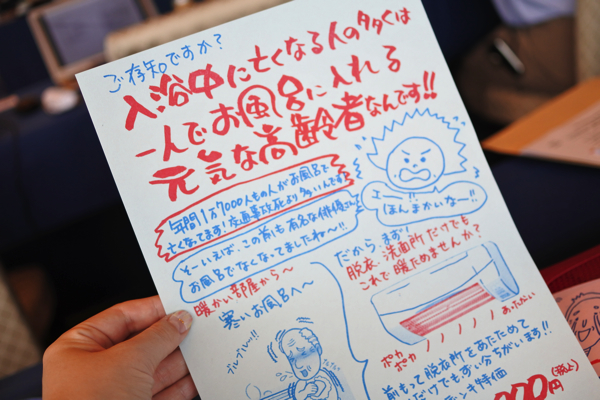 ご存知ですか?
入浴中に亡くなる人の多くは
一人でお風呂に入れる
元気な高齢者なんです!!
年間1万7000人もの人がお風呂で
亡くなってます!交通事故死より多いんです!
そーいえば、この前も有名な俳優さん
お風呂でなくなってましたねー!!
えー!!
ほんまかいなー!!
暖かい部屋から〜
寒いお風呂へ〜
ブルブルー!!
だから、まず!
脱衣、洗面所だけでも
これで暖ためませんか?
ポカ
ポカ
あったかい
前もって脱衣所をあたためて
だけでもずい分ちがいます!!
ンキ特価
000円
(税込)